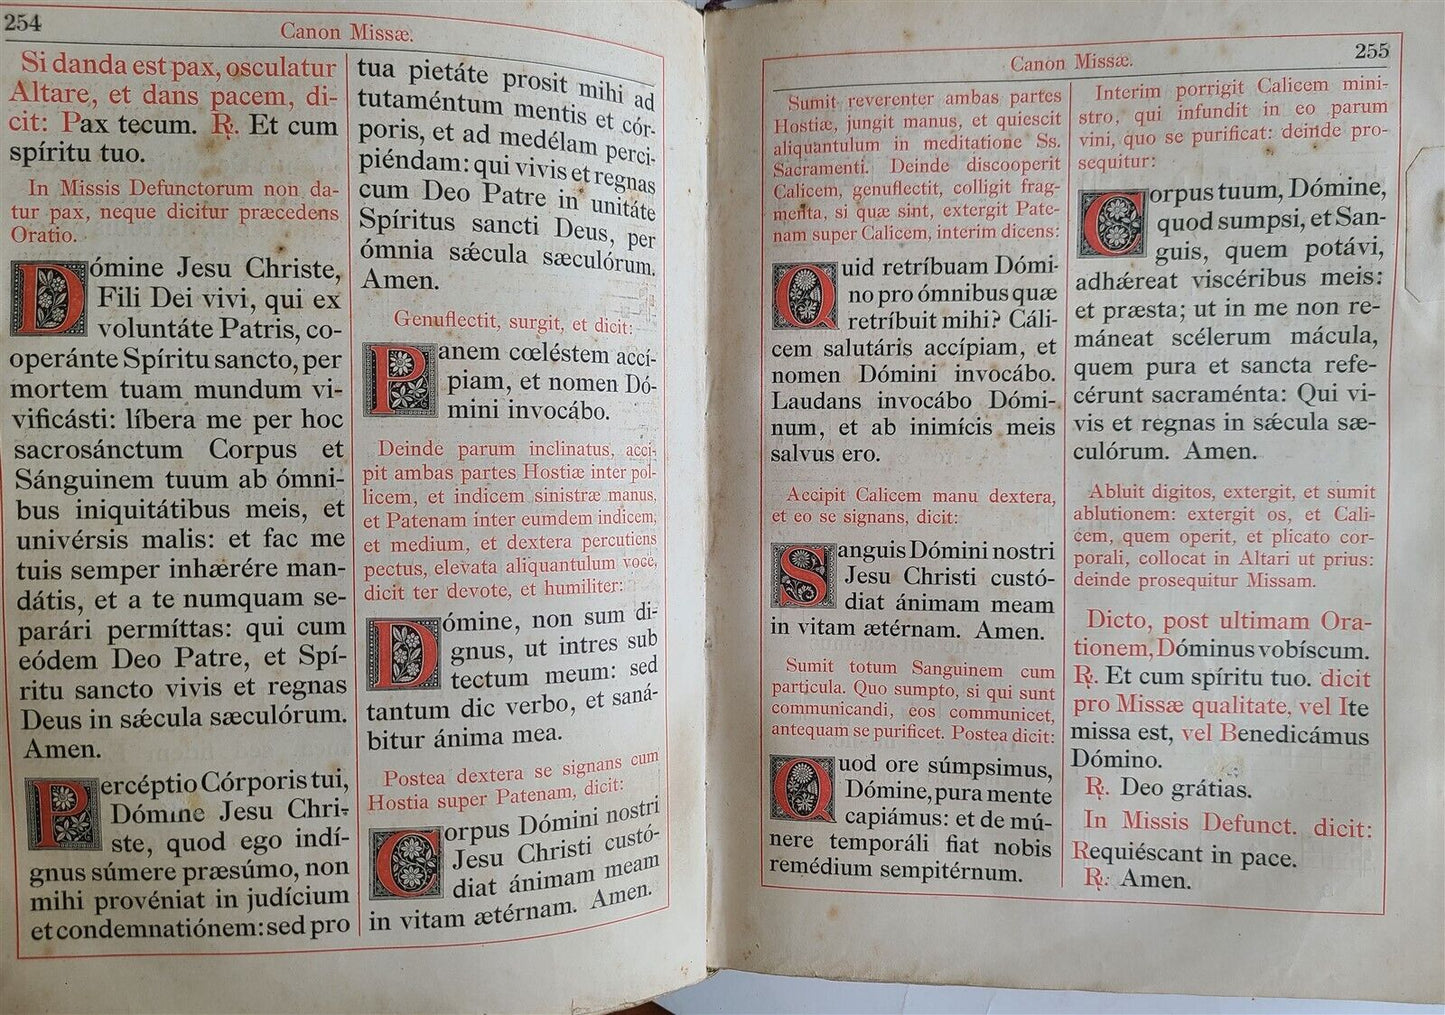 254
Canon Missæ.
Si danda est pax, osculatur
Altare, et dans pacem, di-
cit: Pax tecum. ℟. Et cum
spíritu tuo.
In Missis Defunctorum non da-
tur pax, neque dicitur præcedens
Oratio.
Dómine Jesu Christe,
Fili Dei vivi, qui ex
voluntáte Patris, co-
operánte Spíritu sancto, per
mortem tuam mundum vi-
vificásti: líbera me per hoc
sacrosánctum Corpus et
Sánguinem tuum ab ómni-
bus iniquitátibus meis, et
univérsis malis: et fac me
tuis semper inhærére man-
dátis, et a te numquam se-
parári permíttas: qui cum
eódem Deo Patre, et Spí-
ritu sancto vivis et regnas
Deus in sǽcula sæculórum.
Amen.
Percéptio Córporis tui,
Dómine Jesu Chri-
ste, quod ego indí-
gnus súmere præsúmo, non
mihi provéniat in judícium
et condemnatiónem: sed pro
tua pietáte prosit mihi ad
tutaméntum mentis et cór-
poris, et ad medélam perci-
piéndam: qui vivis et regnas
cum Deo Patre in unitáte
Spíritus sancti Deus, per
ómnia sǽcula sæculórum.
Amen.
Genuflectit, surgit, et dicit:
Panem cœléstem accí-
piam, et nomen Dó-
mini invocábo.
Deinde parum inclinatus, acci-
pit ambas partes Hostiæ inter pol-
licem, et indicem sinistræ manus,
et Patenam inter eumdem indicem,
et medium, et dextera percutiens
pectus, elevata aliquantulum voce,
dicit ter devote, et humiliter:
Dómine, non sum di-
gnus, ut intres sub
tectum meum: sed
tantum dic verbo, et saná-
bitur ánima mea.
Postea dextera se signans cum
Hostia super Patenam, dicit:
Corpus Dómini nostri
Jesu Christi custó-
diat ánimam meam
in vitam ætérnam. Amen.
Canon Missæ.
255
Sumit reverenter ambas partes
Hostiæ, jungit manus, et quiescit
aliquantulum in meditatione Ss.
Sacramenti. Deinde discooperit
Calicem, genuflectit, colligit frag-
menta, si quæ sint, extergit Pate-
nam super Calicem, interim dicens:
Quid retríbuam Dómi-
no pro ómnibus quæ
retríbuit mihi? Cáli-
cem salutáris accípiam, et
nomen Dómini invocábo.
Laudans invocábo Dómi-
num, et ab inimícis meis
salvus ero.
Accipit Calicem manu dextera,
et eo se signans, dicit:
Sanguis Dómini nostri
Jesu Christi custó-
diat ánimam meam
in vitam ætérnam. Amen.
Sumit totum Sanguinem cum
particula. Quo sumpto, si qui sunt
communicandi, eos communicet,
antequam se purificet. Postea dicit:
Quod ore súmpsimus,
Dómine, pura mente
capiámus: et de mú-
nere temporáli fiat nobis
remédium sempitérnum.
Interim porrigit Calicem mini-
stro, qui infundit in eo parum
vini, quo se purificat: deinde pro-
sequitur:
Corpus tuum, Dómine,
quod sumpsi, et San-
guis, quem potávi,
adhǽreat viscéribus meis:
et præsta; ut in me non re-
máneat scélerum mácula,
quem pura et sancta refe-
cérunt sacraménta: Qui vi-
vis et regnas in sǽcula sæ-
culórum. Amen.
Abluit digitos, extergit, et sumit
ablutionem: extergit os, et Cali-
cem, quem operit, et plicato cor-
porali, collocat in Altari ut prius:
deinde prosequitur Missam.
Dicto, post ultimam Ora-
tionem, Dóminus vobíscum.
℟. Et cum spíritu tuo. dicit
pro Missæ qualitate, vel Ite
missa est, vel Benedicámus
Dómino.
℟. Deo grátias.
In Missis Defunct. dicit:
Requiéscant in pace.
℟. Amen.